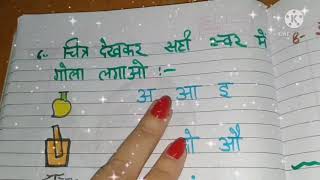 6- चित्र देखकर सही स्वर में
गोला लगाओ :-
अ आ इ
ओ औ